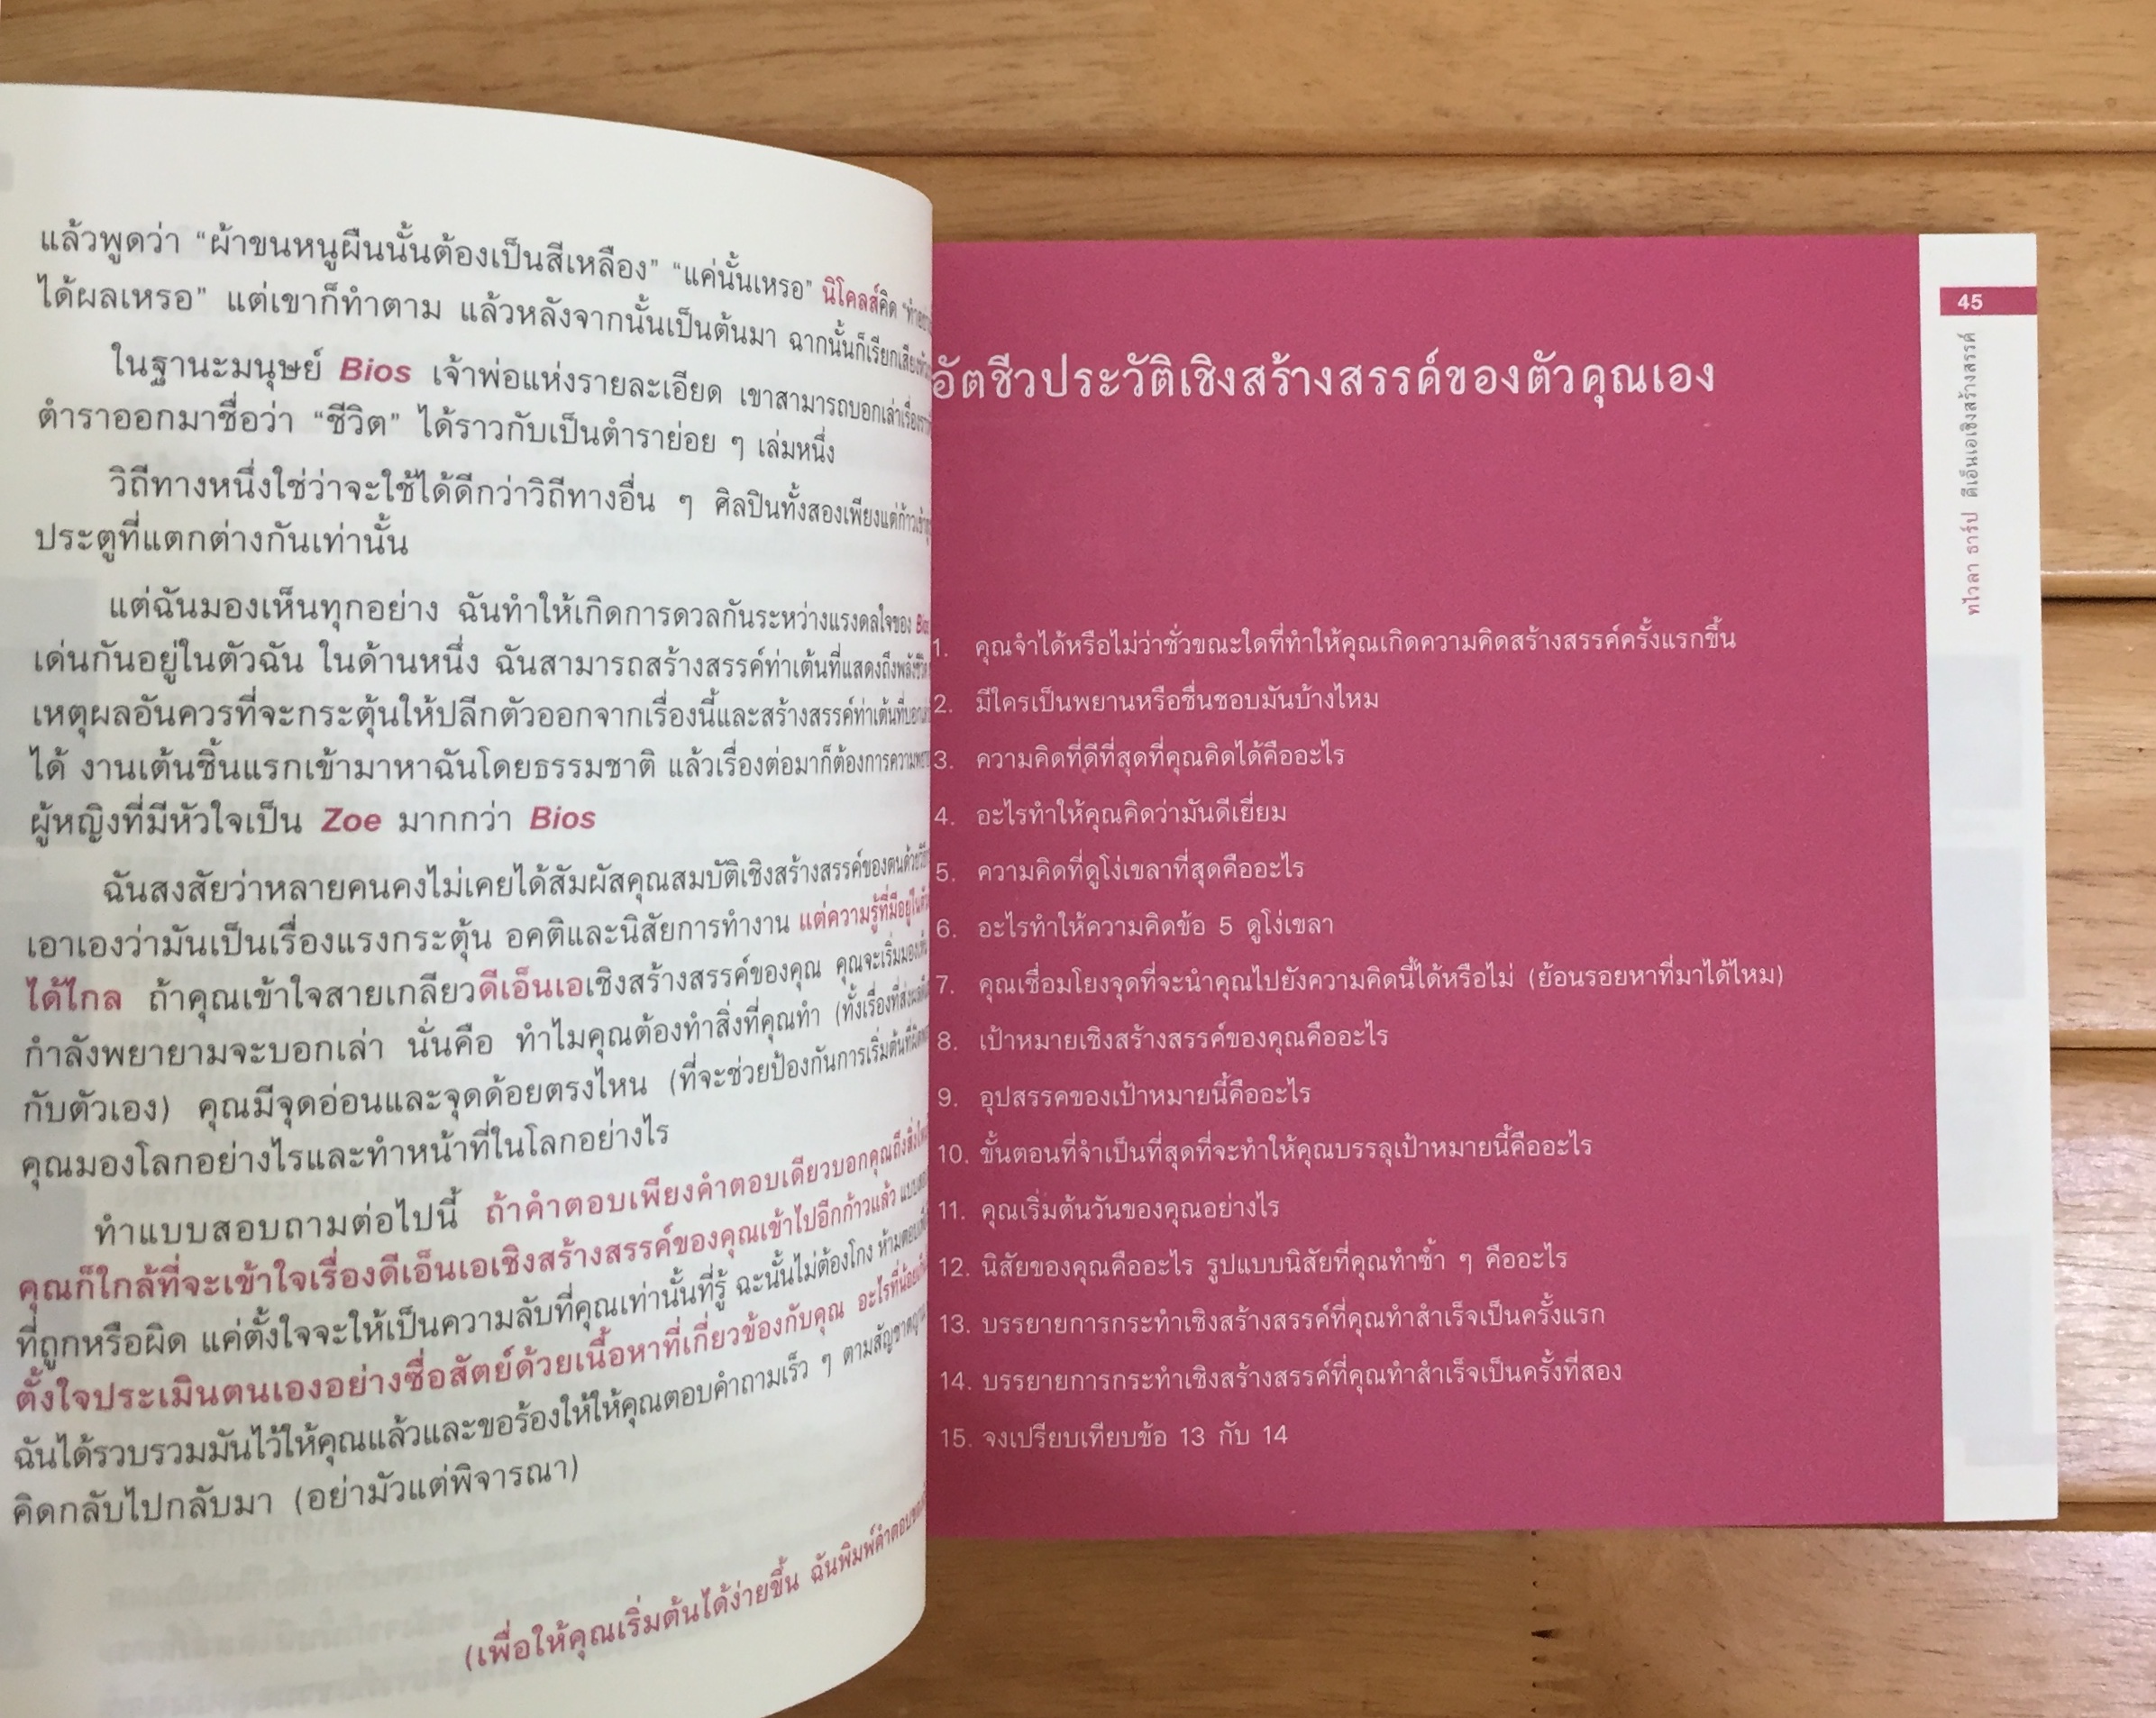 แล้วพูดว่า “ผ้าขนหนูผืนนั้นต้องเป็นสีเหลือง” “แค่นั้นเหรอ” นิโคลส์คิด
ได้ผลเหรอ” แต่เขาก็ทำตาม แล้วหลังจากนั้นเป็นต้นมา ฉากนั้นก็เรียก
ในฐานะมนุษย์ Bios เจ้าพ่อแห่งรายละเอียด เขาสามารถบอกเล่า
ตำราออกมาชื่อว่า “ชีวิต” ได้ราวกับเป็นตำราย่อย ๆ เล่มหนึ่ง
วิถีทางหนึ่งใช่ว่าจะใช้ได้ดีกว่าวิถีทางอื่น ๆ ศิลปินทั้งสองเพียงแต่ก้าว
ประตูที่แตกต่างกันเท่านั้น
แต่ฉันมองเห็นทุกอย่าง ฉันทำให้เกิดการดวลกันระหว่างแรงดลใจของ
เด่นกันอยู่ในตัวฉัน ในด้านหนึ่ง ฉันสามารถสร้างสรรค์ท่าเต้นที่แสดงถึง
เหตุผลอันควรที่จะกระตุ้นให้ปลีกตัวออกจากเรื่องนี้และสร้างสรรค์ท่าเต้น
ได้ งานเต้นชิ้นแรกเข้ามาหาฉันโดยธรรมชาติ แล้วเรื่องต่อมาก็ต้องการ
ผู้หญิงที่มีหัวใจเป็น Zoe มากกว่า Bios
ฉันสงสัยว่าหลายคนคงไม่เคยได้สัมผัสคุณสมบัติเชิงสร้างสรรค์ของตน
เอาเองว่ามันเป็นเรื่องแรงกระตุ้น อคติและนิสัยการทำงาน แต่ความรู้ที่มีอยู่
ได้ไกล ถ้าคุณเข้าใจสายเกลียวดีเอ็นเอเชิงสร้างสรรค์ของคุณ คุณจะเริ่มมอง
กำลังพยายามจะบอกเล่า นั่นคือ ทำไมคุณต้องทำสิ่งที่คุณทำ
กับตัวเอง) คุณมีจุดอ่อนและจุดด้อยตรงไหน (ที่จะช่วยป้องกันการเริ่มต้น
คุณมองโลกอย่างไรและทำหน้าที่ในโลกอย่างไร
ทำแบบสอบถามต่อไปนี้ ถ้าคำตอบเพียงคำตอบเดียวบอกคุณถึง
คุณก็ใกล้ที่จะเข้าใจเรื่องดีเอ็นเอเชิงสร้างสรรค์ของคุณเข้าไปอีกก้าวแล้ว
ที่ถูกหรือผิด แค่ตั้งใจจะให้เป็นความลับที่คุณเท่านั้นที่รู้ ฉะนั้นไม่ต้องโกง
ตั้งใจประเมินตนเองอย่างซื่อสัตย์ด้วยเนื้อหาที่เกี่ยวข้องกับคุณ
ฉันได้รวบรวมมันไว้ให้คุณแล้วและขอร้องให้ให้คุณตอบคำถามเร็ว ๆ ตาม
คิดกลับไปกลับมา (อย่ามัวแต่พิจารณา)
(เพื่อให้คุณเริ่มต้นได้ง่ายขึ้น ฉันพิมพ์คำตอบ
45
ทไวลา ธาร์ป ดีเอ็นเอเชิงสร้างสรรค์
อัตชีวประวัติเชิงสร้างสรรค์ของตัวคุณเอง
1. คุณจำได้หรือไม่ว่าชั่วขณะใดที่ทำให้คุณเกิดความคิดสร้างสรรค์ครั้งแรกขึ้น
2. มีใครเป็นพยานหรือชื่นชอบมันบ้างไหม
3. ความคิดที่ดีที่สุดที่คุณคิดได้คืออะไร
4. อะไรทำให้คุณคิดว่ามันดีเยี่ยม
5. ความคิดที่ดูโง่เขลาที่สุดคืออะไร
6. อะไรทำให้ความคิดข้อ 5 ดูโง่เขลา
7. คุณเชื่อมโยงจุดที่จะนำคุณไปยังความคิดนี้ได้หรือไม่ (ย้อนรอยหาที่มาได้ไหม)
8. เป้าหมายเชิงสร้างสรรค์ของคุณคืออะไร
9. อุปสรรคของเป้าหมายนี้คืออะไร
10. ขั้นตอนที่จำเป็นที่สุดที่จะทำให้คุณบรรลุเป้าหมายนี้คืออะไร
11. คุณเริ่มต้นวันของคุณอย่างไร
12. นิสัยของคุณคืออะไร รูปแบบนิสัยที่คุณทำซ้ำ ๆ คืออะไร
13. บรรยายการกระทำเชิงสร้างสรรค์ที่คุณทำสำเร็จเป็นครั้งแรก
14. บรรยายการกระทำเชิงสร้างสรรค์ที่คุณทำสำเร็จเป็นครั้งที่สอง
15. จงเปรียบเทียบข้อ 13 กับ 14